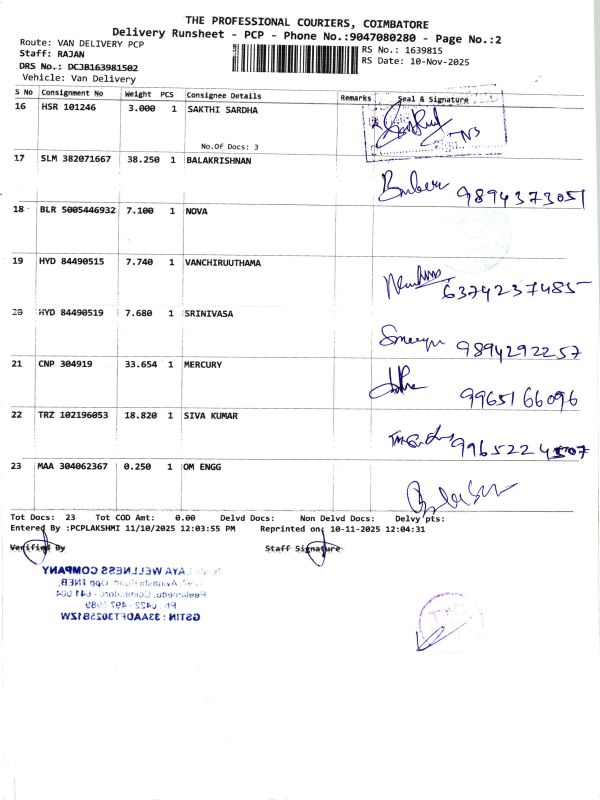 THE PROFESSIONAL COURIERS, COIMBATORE
Delivery Runsheet - PCP - Phone No.:9047080280 - Page No.:2
Route: VAN DELIVERY PCP
RS No.: 1639815
Staff: RAJAN
RS Date: 10-Nov-2025
DRS No.: DCJB163981502
Vehicle: Van Delivery
S No Consignment No Weight PCS Consignee Details Remarks Seal & Signature
16 HSR 101246 3.000 1 SAKTHI SARDHA
No.Of Docs: 3
17 SLM 382071667 38.250 1 BALAKRISHNAN
9894373051
18 BLR 5005446932 7.100 1 NOVA
19 HYD 84490515 7.740 1 VANCHIRUUTHAMA
6374237485
20 HYD 84490519 7.680 1 SRINIVASA
9894292257
21 CNP 304919 33.654 1 MERCURY
9965166096
22 TRZ 102196053 18.820 1 SIVA KUMAR
9965224507
23 MAA 304062367 0.250 1 OM ENGG
Tot Docs: 23 Tot COD Amt: 0.00 Delvd Docs: Non Delvd Docs: Delvy pts:
Entered By :PCPLAKSHMI 11/10/2025 12:03:55 PM Reprinted on: 10-11-2025 12:04:31
Verified By Staff Signature
WELLNESS COMPANY
Opp TNEB,
Peelamedu, Coimbatore - 641 004
GSTIN : 33AADFT3025B1ZW